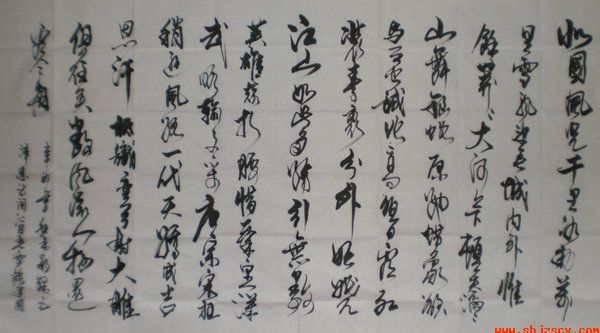 北国风光千里冰封万
里雪飘望长城内外惟
余莽莽大河上下顿失滔滔
山舞银蛇原驰蜡象欲
与天公试比高须晴日看红
装素裹分外妖娆
江山如此多娇引无数
英雄竞折腰惜秦皇汉
武略输文采唐宗宋祖
稍逊风骚一代天骄成吉
思汗只识弯弓射大雕
俱往矣数风流人物还
看今朝
www.shjzscx.com